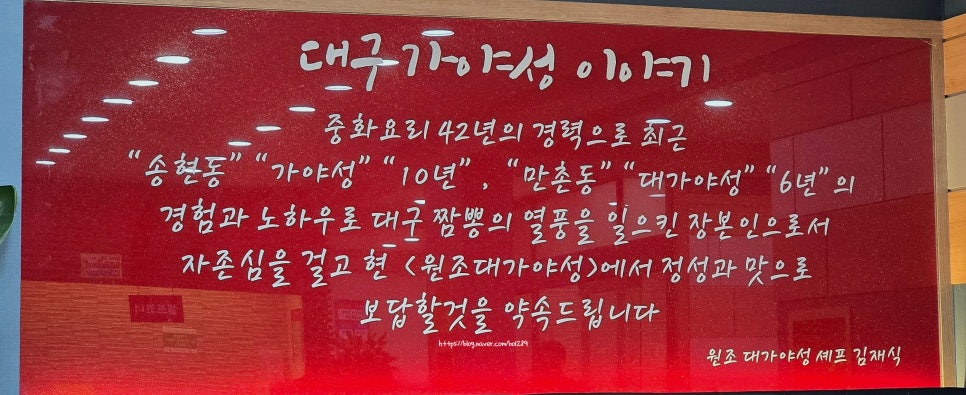 대구 가야성 이야기
중화요리 42년의 경력으로 최근
“송현동” “가야성” “10년”, “만촌동” “대가야성” “6년”의
경험과 노하우로 대구 짬뽕의 열풍을 일으킨 장본인으로서
자존심을 걸고 현 <원조대가야성>에서 정성과 맛으로
보답할것을 약속드립니다
https://blog.naver.com/bol219
원조 대가야성 셰프 김재식